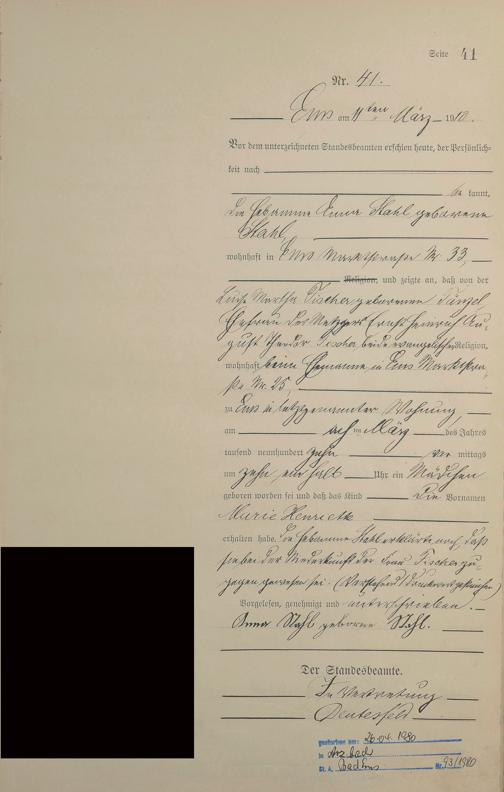 Seite 41
Nr. 41.
Ems am 11ten März 1910.
Vor dem unterzeichneten Standesbeamten erschien heute, der Persönlich-
keit nach
be kannt,
die Hebamme Anna Stahl geborene
Stahl,
wohnhaft in Ems Marktstraße Nr. 33,
Religion, und zeigte an, daß von der
Martha Fischer geborenen
Ehefrau des Metzgers Ernst Heinrich Au-
gust Theodor Fischer, beide evangelischer Religion,
wohnhaft beim Ehemanne in Ems Marktstra-
ße Nr. 25,
zu Ems in letztgenannter Wohnung,
am acht ten März des Jahres
tausend neunhundert zehn vor mittags
um zehn ein halb Uhr ein Mädchen
geboren worden sei und daß das Kind die Vornamen
Marie Henriette
erhalten habe. Die Hebamme Stahl erklärte noch, daß
sie bei der Niederkunft der Frau Fischer zu-
gegen gewesen sei. (Vorstehend Druckwort gestrichen)
Vorgelesen, genehmigt und unterschrieben.
Anna Stahl geborne Stahl.
Der Standesbeamte.
In Vertretung
gestorben am: 26.04.1980
in Arzbach
St. A. Bad Ems Nr. 93/1980